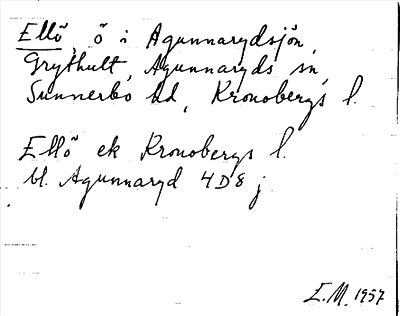 Ellö, ö i Agunnarydsjön,
Grythult, Agunnaryds sn,
Sunnerbo hd, Kronobergs l.
Ellö ek Kronobergs l.
bl. Agunnaryd 4D8 j
E.M. 1957